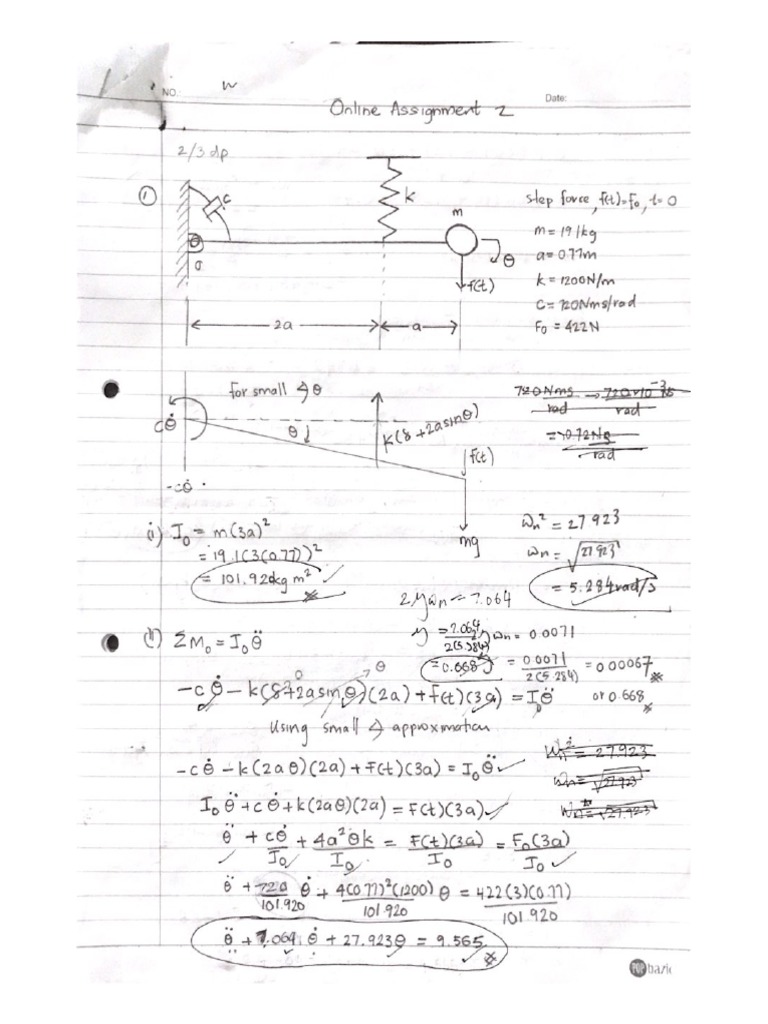 NO.
Date:
Online Assignment 2
2/3 dp
①
c
k
m
θ
θ
o
f(t)
2a
a
step force, f(t)=F₀, t=0
m= 19.1kg
a= 0.77m
k= 1200N/m
C= 720Nms/rad
F₀ = 422N
for small ∡ θ
cθ̇
θ
k(δ+2asinθ)
f(t)
mg
-cθ̇
720Nms/rad → 720×10⁻³
= 0.72Ns/rad
i) I₀ = m(3a)²
= 19.1(3(0.77))²
= 101.920kgm²
ωn² = 27.923
ωn = √27.923
= 5.284rad/s
2ηωn = 7.064
η = 7.064/2(5.284)
= 0.668
ηωn = 0.0071
= 0.0071/2(5.284) = 0.00067
or 0.668
ii) ΣM₀ = I₀θ̈
-cθ̇ - k(δ+2asinθ)(2a) + f(t)(3a) = I₀θ̈
0
θ
Using small ∡ approximation
-cθ̇ - k(2aθ)(2a) + F(t)(3a) = I₀θ̈
I₀θ̈ + cθ̇ + k(2aθ)(2a) = F(t)(3a)
ωn² = 27.923
ωn = √27.923
θ̈ + cθ̇/I₀ + 4a²θk/I₀ = F(t)(3a)/I₀ = F₀(3a)/I₀
θ̈ + 720/101.920 θ̇ + 4(0.77)²(1200)/101.920 θ = 422(3)(0.77)/101.920
θ̈ + 7.064 θ̇ + 27.923θ = 9.565
POP bazic